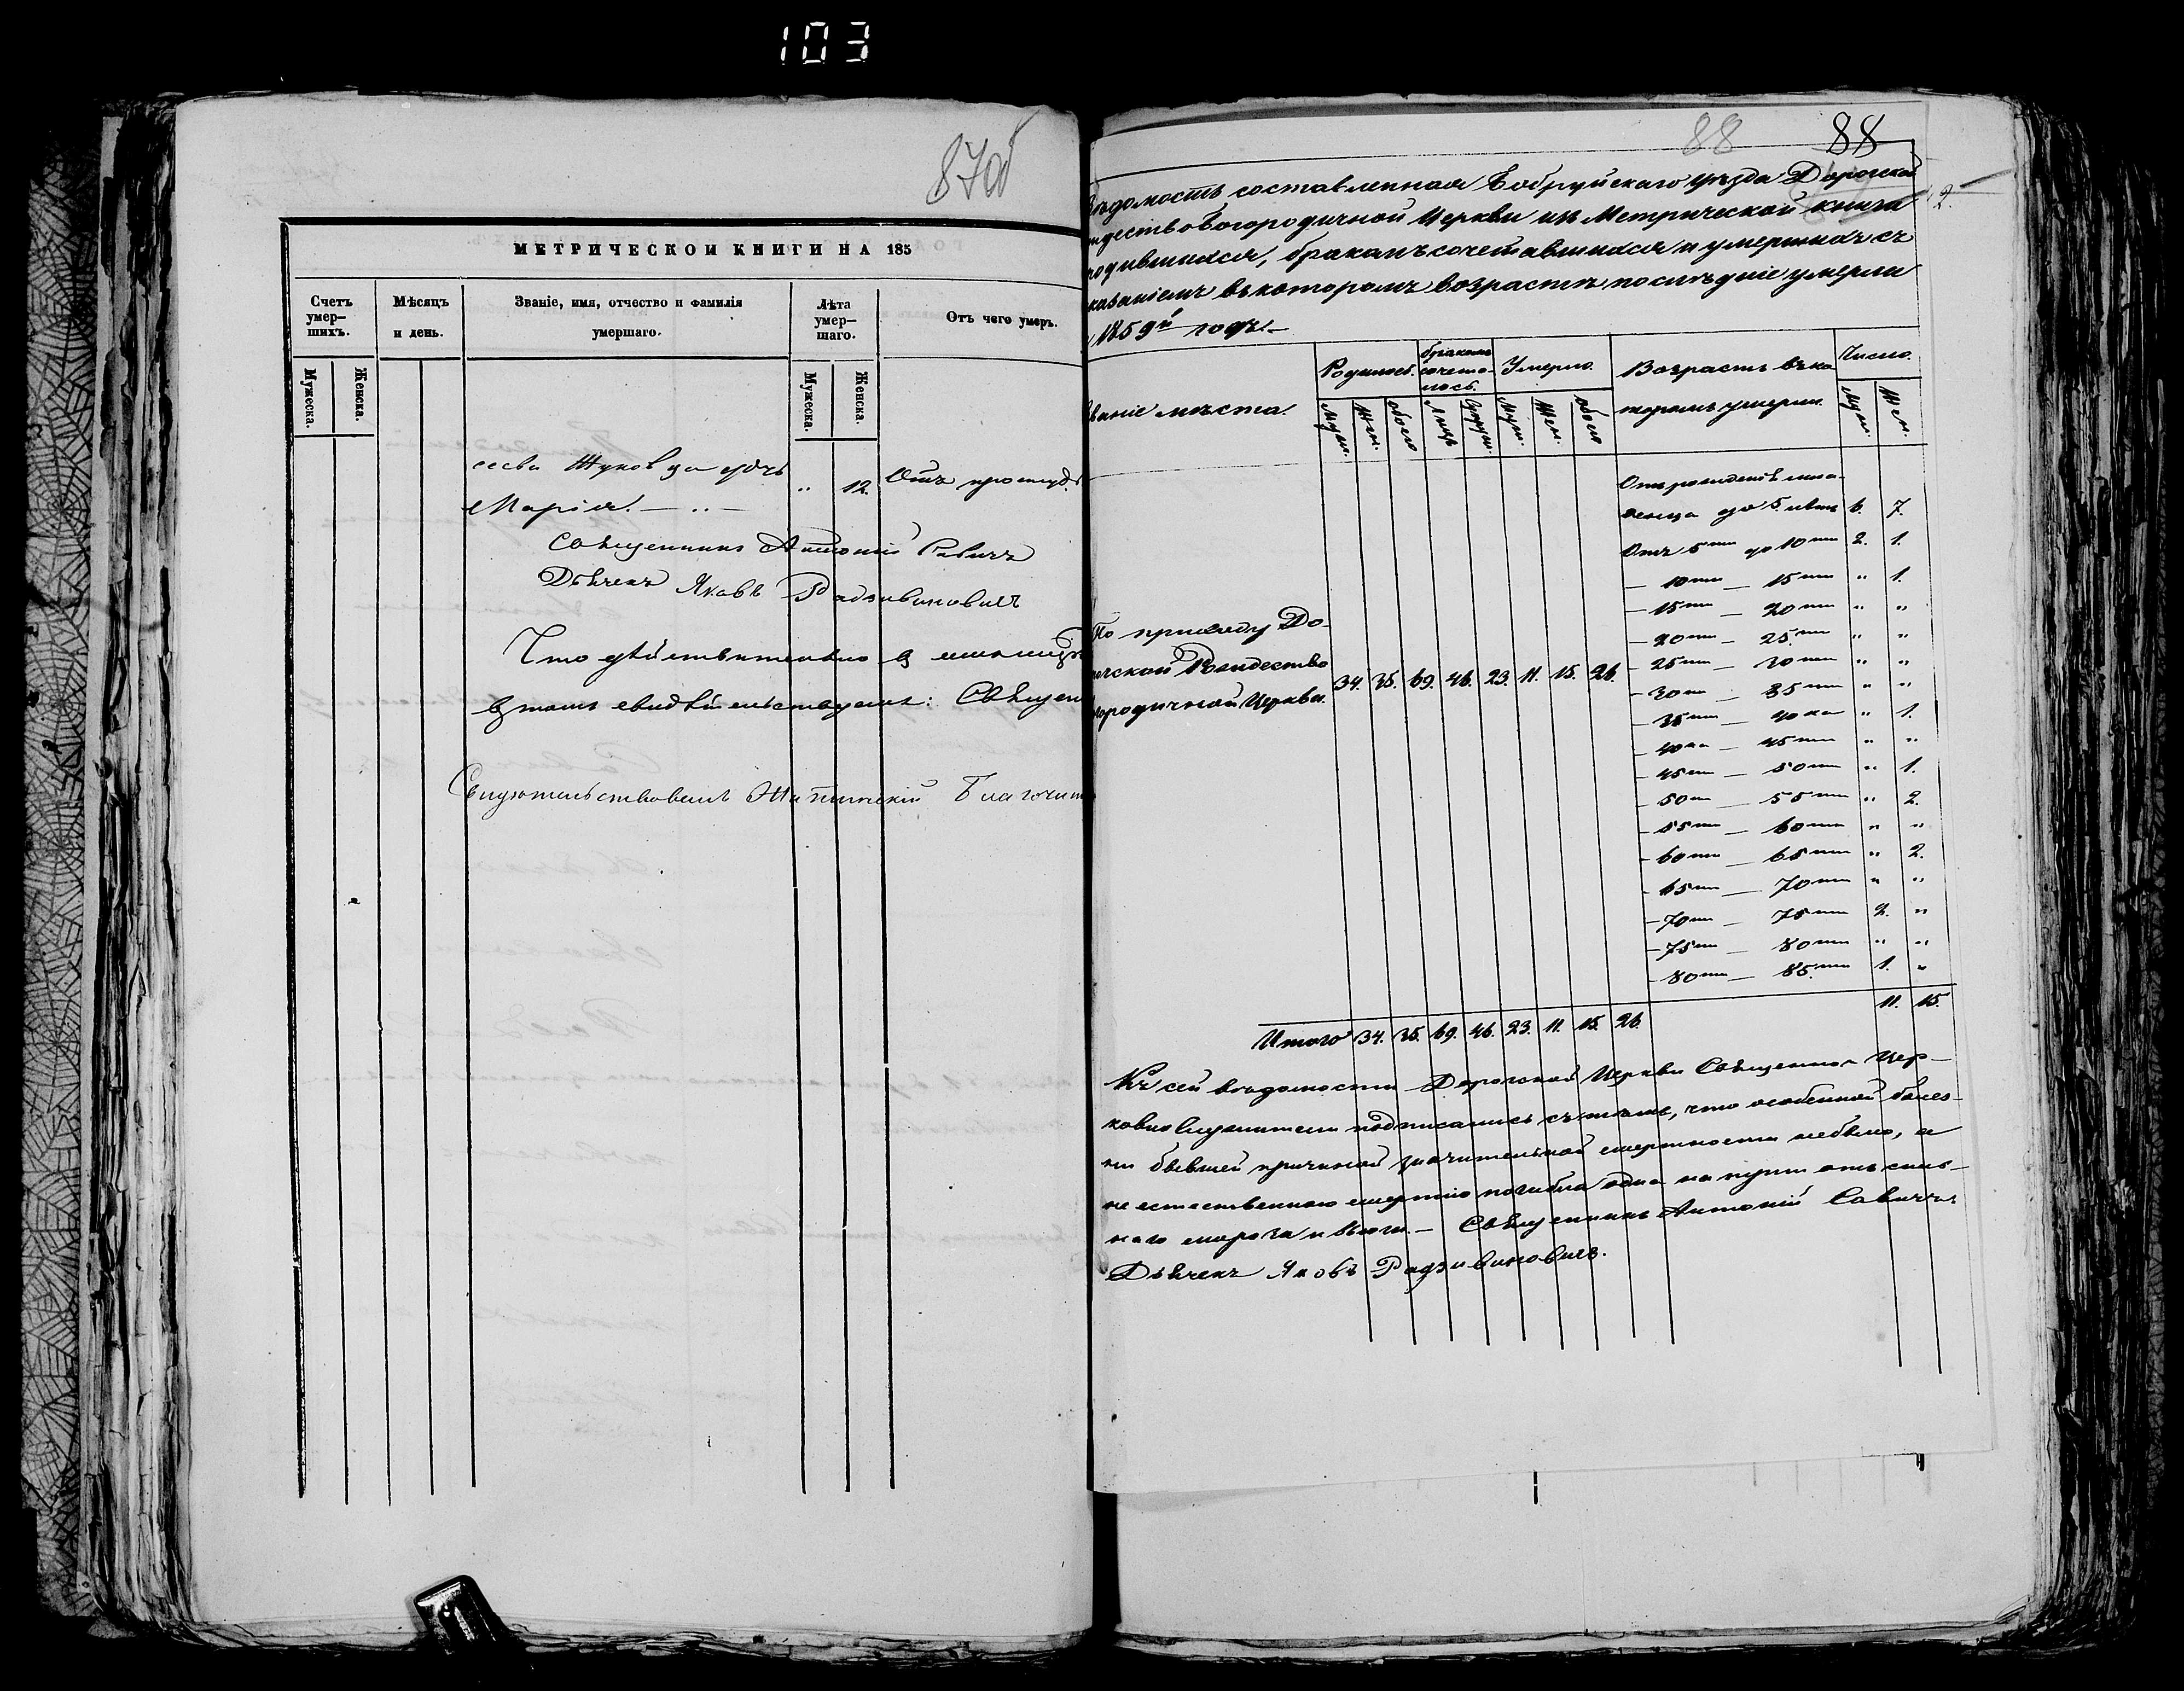 103
87об
МЕТРИЧЕСКОЙ КНИГИ НА 185
Счетъ умер-шихъ.
Мѣсяцъ и день.
Званіе, имя, отчество и фамилія умершаго.
Лѣта умер-шаго.
Отъ чего умеръ.
Мужеска.
Женска.
Мужеска.
Женска.
Жукова дочь
Марія. — „ —
„ 12.
Отъ простуд
Священникъ Антоній Савичъ
Дьячекъ Яковъ Радзивиновичъ
Что дѣйствительно
въ томъ свидѣтельствуемъ: Священ
Свидѣтельствовалъ Благочин
88 88
2.
ѣдомость составленная Бобруйскаго уѣзда Дорожской
ждество Богородичной Церкви изъ Метрической книги
родившихся, бракомъ сочетавшихся и умершихъ съ
казаніемъ въ которомъ возрастѣ послѣдніе умерли
1859й годъ. —
званіе мѣста.
Родилось.
бракомъ сочета-лось.
Умерло.
Возрастъ въ ко-
торомъ умерли.
Число.
Муж.
Жен.
обоего
Лицъ
Супруж.
Муж.
Жен.
обоего
Муж.
Жен.
По приходу До-
рожской Рождество
городичной Церкви.
34. 35. 69. 46. 23. 11. 15. 26.
Отъ рожденія мла-
денца до 5 лѣтъ 6. 7.
Отъ 5ти до 10ти 2. 1.
— 10ти — 15ти „ 1.
— 15ти — 20ти „ „
— 20ти — 25ти „ „
— 25ти — 30ти „ „
— 30ти — 35ти „ „
— 35ти — 40ка „ 1.
— 40ка — 45ти „ „
— 45ти — 50ти „ 1.
— 50ти — 55ти „ 2.
— 55ти — 60ти „ „
— 60ти — 65ти „ 2.
— 65ти — 70ти „ „
— 70ти — 75ти 2. „
— 75ти — 80ти „ „
— 80ти — 85ти 1. „
11. 15.
Итого 34. 35. 69. 46. 23. 11. 15. 26.
Къ сей вѣдомости Дорожской Церкви Священно-Цер-
ковнослужители подписались съ тѣмъ, что особенной болѣз-
ни бывшей причиной значительной смертности небыло, а
не естественною смертію погибла одна на пути отъ силь-
наго мороза и вьюги. — Священникъ Антоній Савичъ.
Дьячекъ Яковъ Радзивиновичъ.